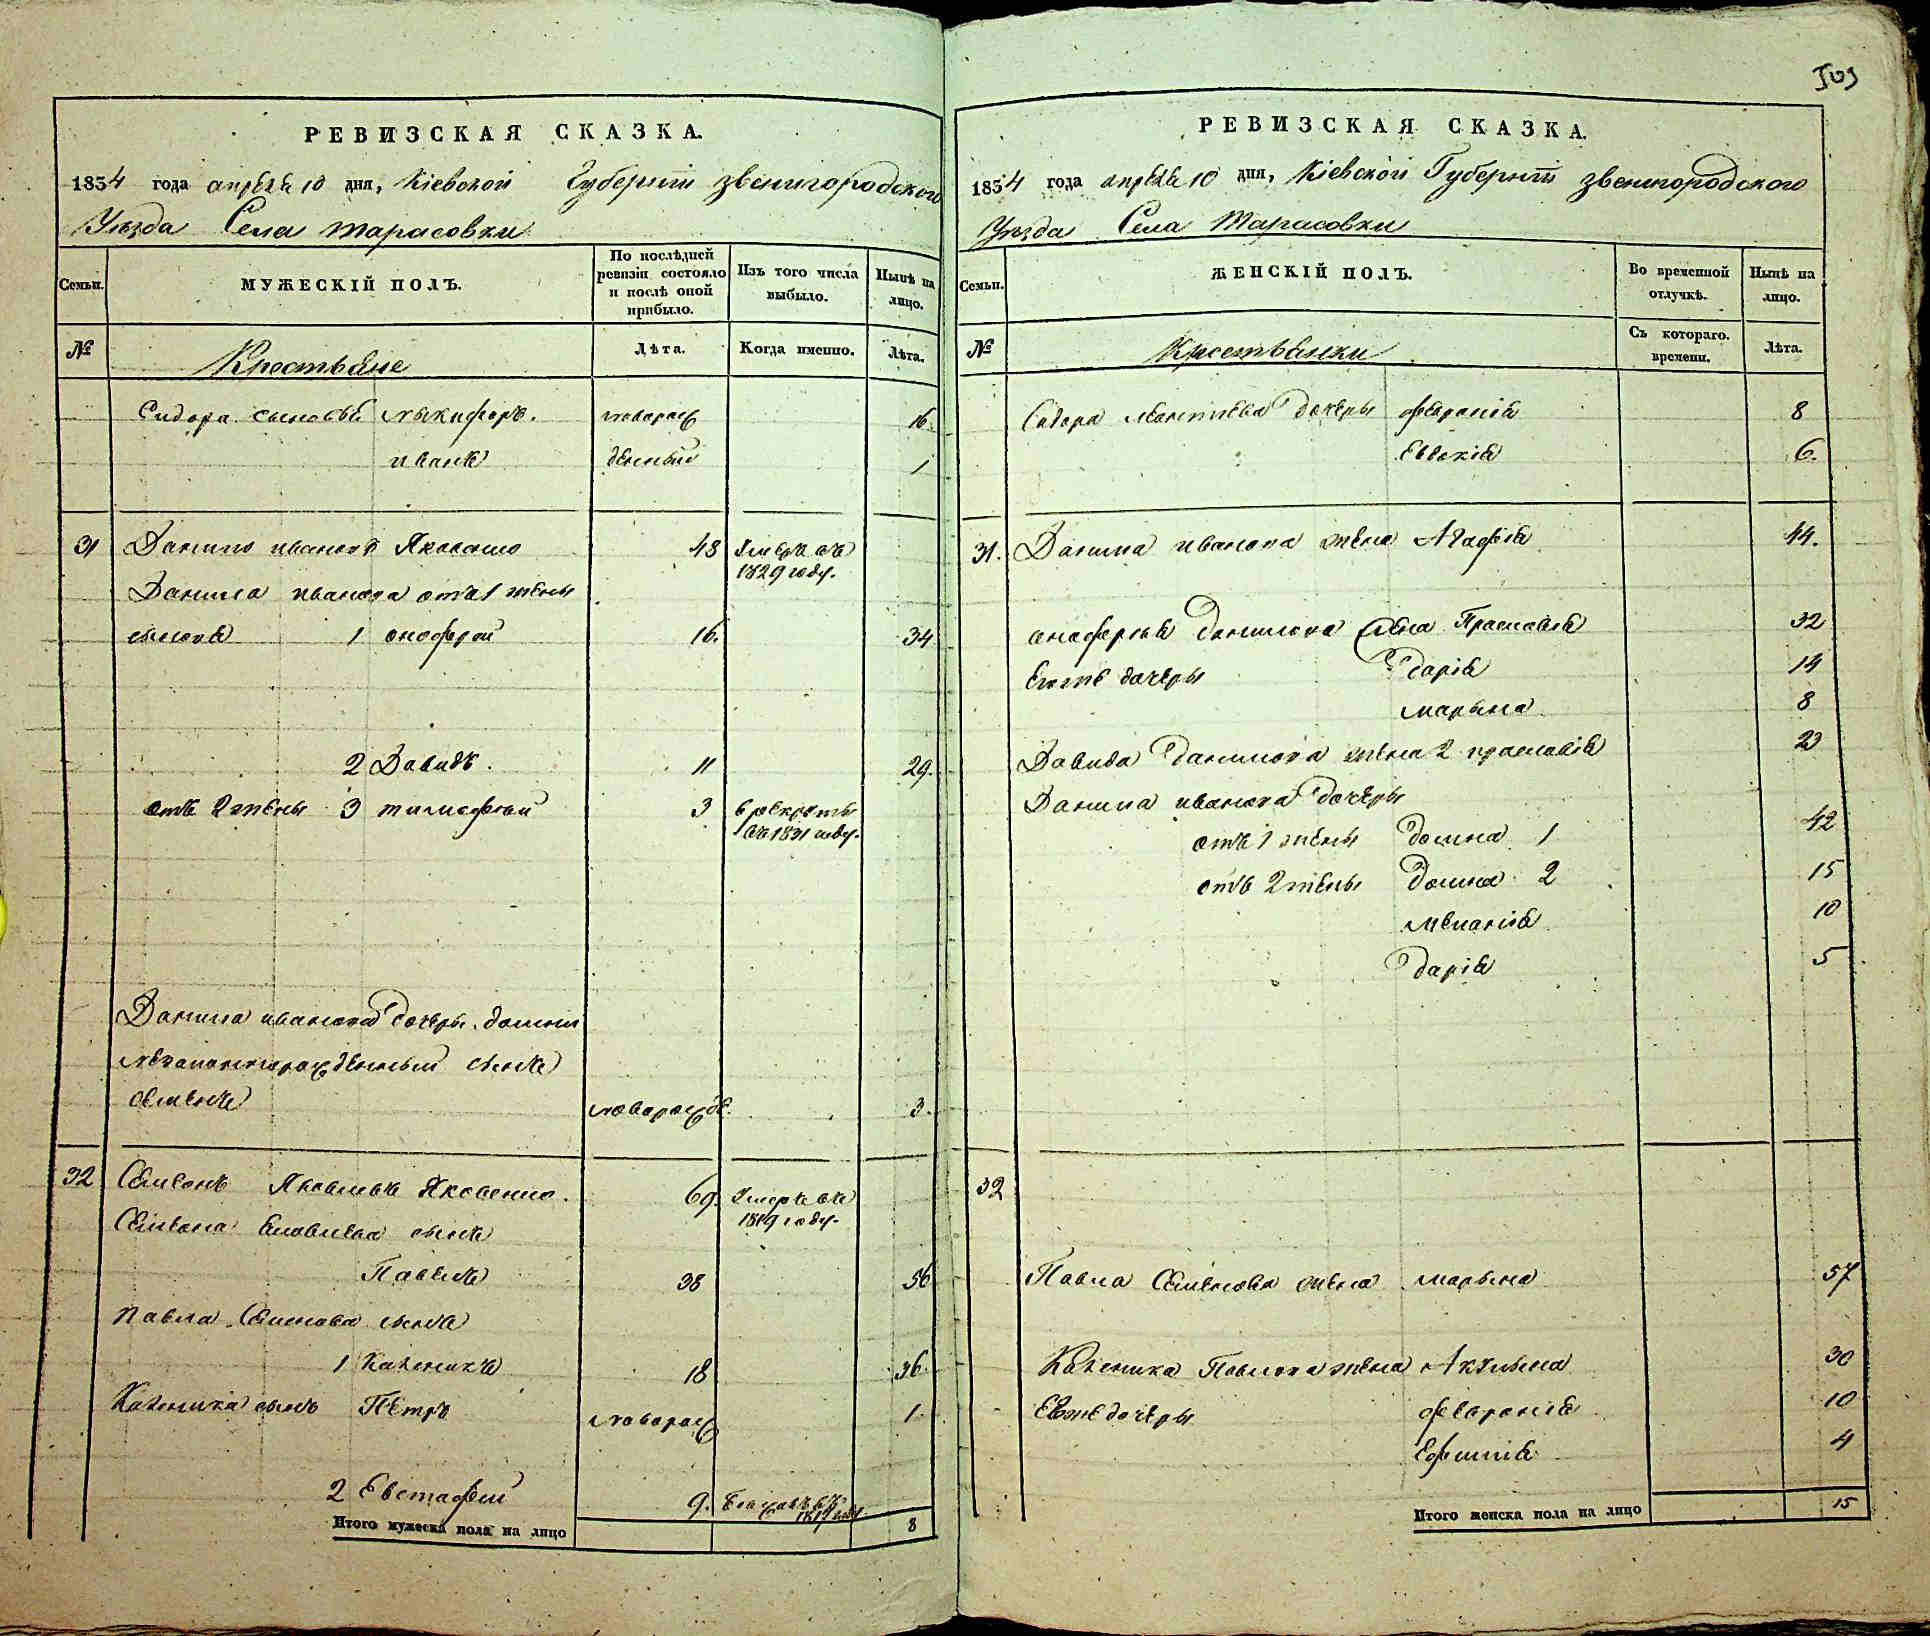 РЕВИЗСКАЯ СКАЗКА.
1834 года апреля 10 дня, Кіевской Губерніи звенигородского
Уезда Села Тарасовки
Семьи. МУЖЕСКІЙ ПОЛЪ. По послѣдней ревизіи состояло и послѣ оной прибыло. Изъ того числа выбыло. Нынѣ на лицо.
№ Крестьяне Лѣта. Когда именно. Лѣта.
Сидора сыновья Никифоръ. новорож 16.
иванъ денный 1
31 Данило ивановъ Яковенко 48 Умеръ въ 1829 году.
Данила иванова отъ 1 жены
сыновя 1 онофрей 16. 34
2 Давидъ. 11 29.
отъ 2 жены 3 тимофей 3 в рекруты въ 1831 году.
Данила иванова дочери домни
незаконнорожденный сынъ
семенъ новорожде. 3.
32 Семенъ Яковлевъ Яковенко. 69. Умеръ въ 1819 году.
Семена Яковлева сынъ
Павелъ 38 56
Павла Семенова сынъ
1 Каленикъ 18 36.
Каленика сынъ Петръ новорож 1.
2 Евстафей 9.
Итого мужеска пола на лицо 8
РЕВИЗСКАЯ СКАЗКА.
1834 года апреля 10 дня, Кіевской Губерніи звенигородского
Уезда Села Тарасовки
Семьи. ЖЕНСКІЙ ПОЛЪ. Во временной отлучкѣ. Нынѣ на лицо.
№ Крестьянки Съ котораго. времени. Лѣта.
Сидора дочери февронія 8
Евдокія 6.
31. Данила иванова жена Агафія 44.
онофрея Данилова жена Прасковія 32
Его же дочери Дарія 14
марьяна 8
Давида Данилова жена 2 прасковія 23
Данила иванова дочери
отъ 1 жены Домна 1 42
отъ 2 жены Домна 2 15
меланія 10
Дарія 5
32
Павла Семенова жена марьяна 57
Каленика Павлова жена Акулина 30
Его же дочери феврония 10
Ефимія 4
Итого женска пола на лицо 15